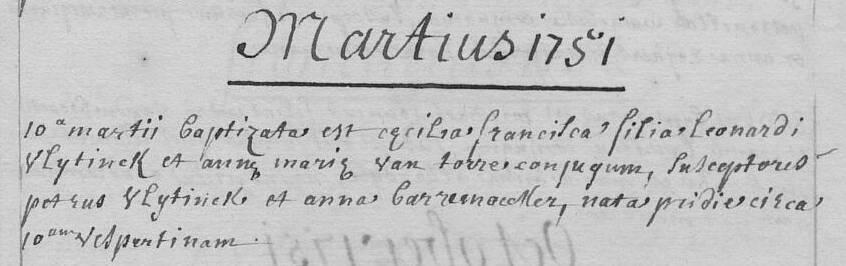 Martius 1751
10a martii baptizata est cęcilia francisca filia Leonardi
Vlytinck et annę marię van torre conjugum, Susceptores
petrus Vlytinck et anna barremaecker, nata pridie circa
10am vespertinam.